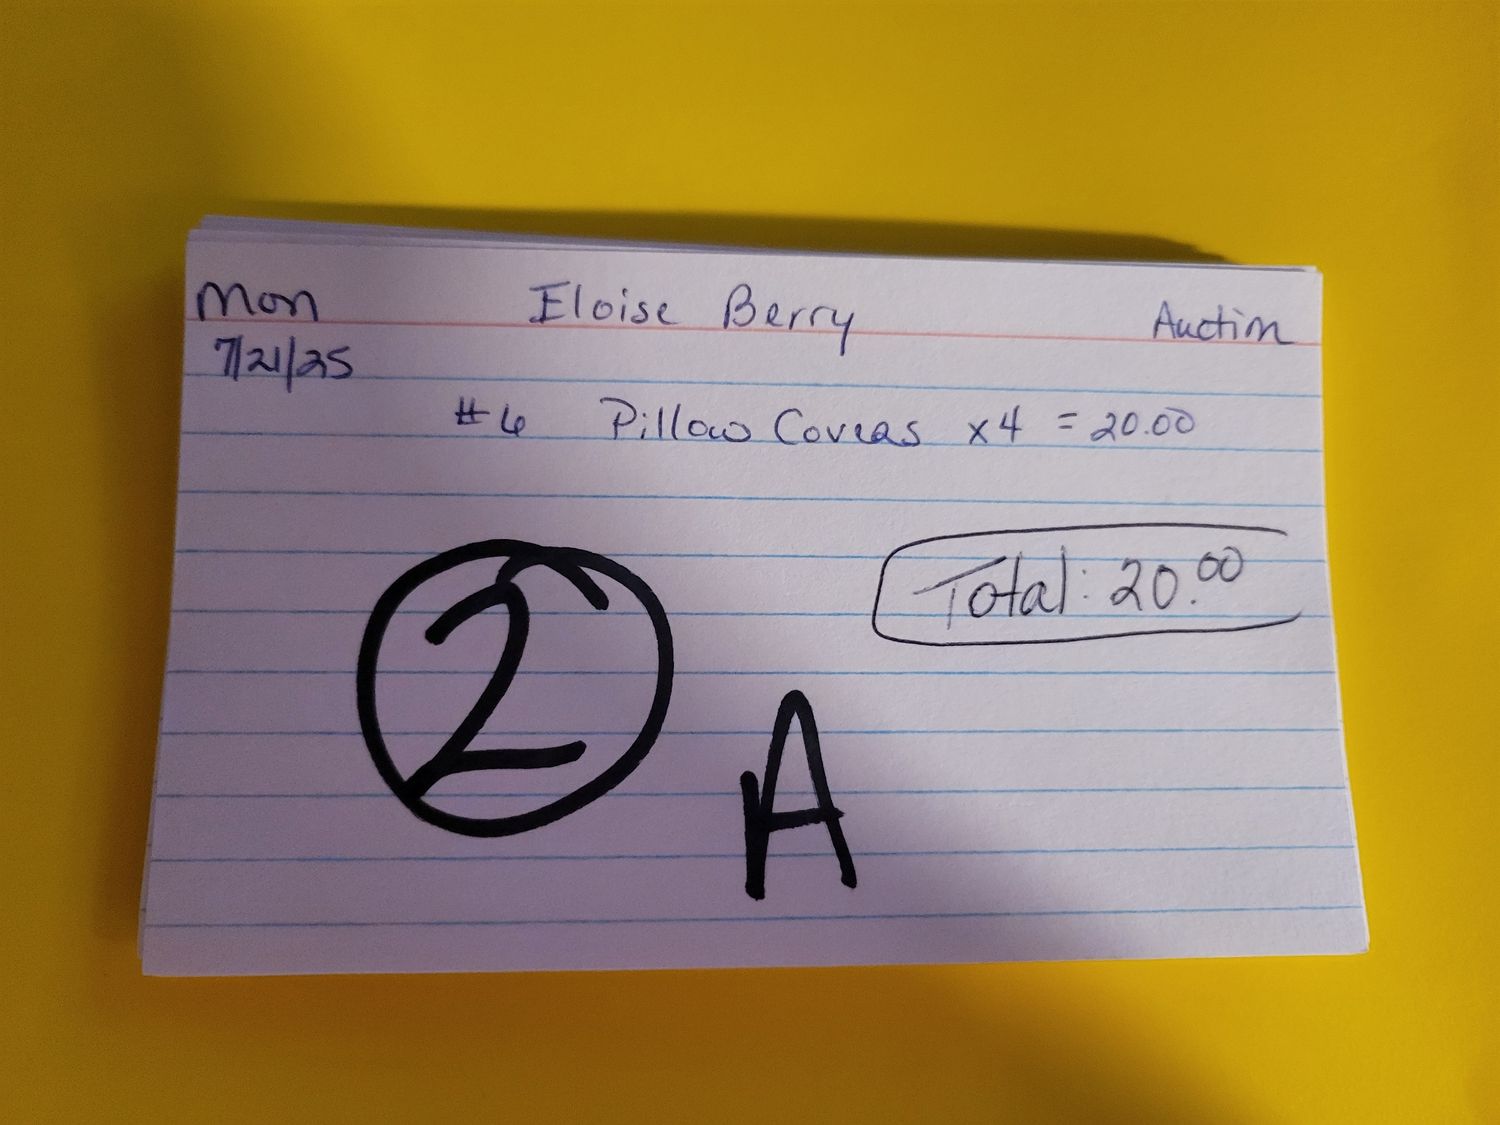 Mon Eloise Berry Auction
7/21/25
#6 Pillow Covers x4 = 20.00
Total: 20.00
2
A